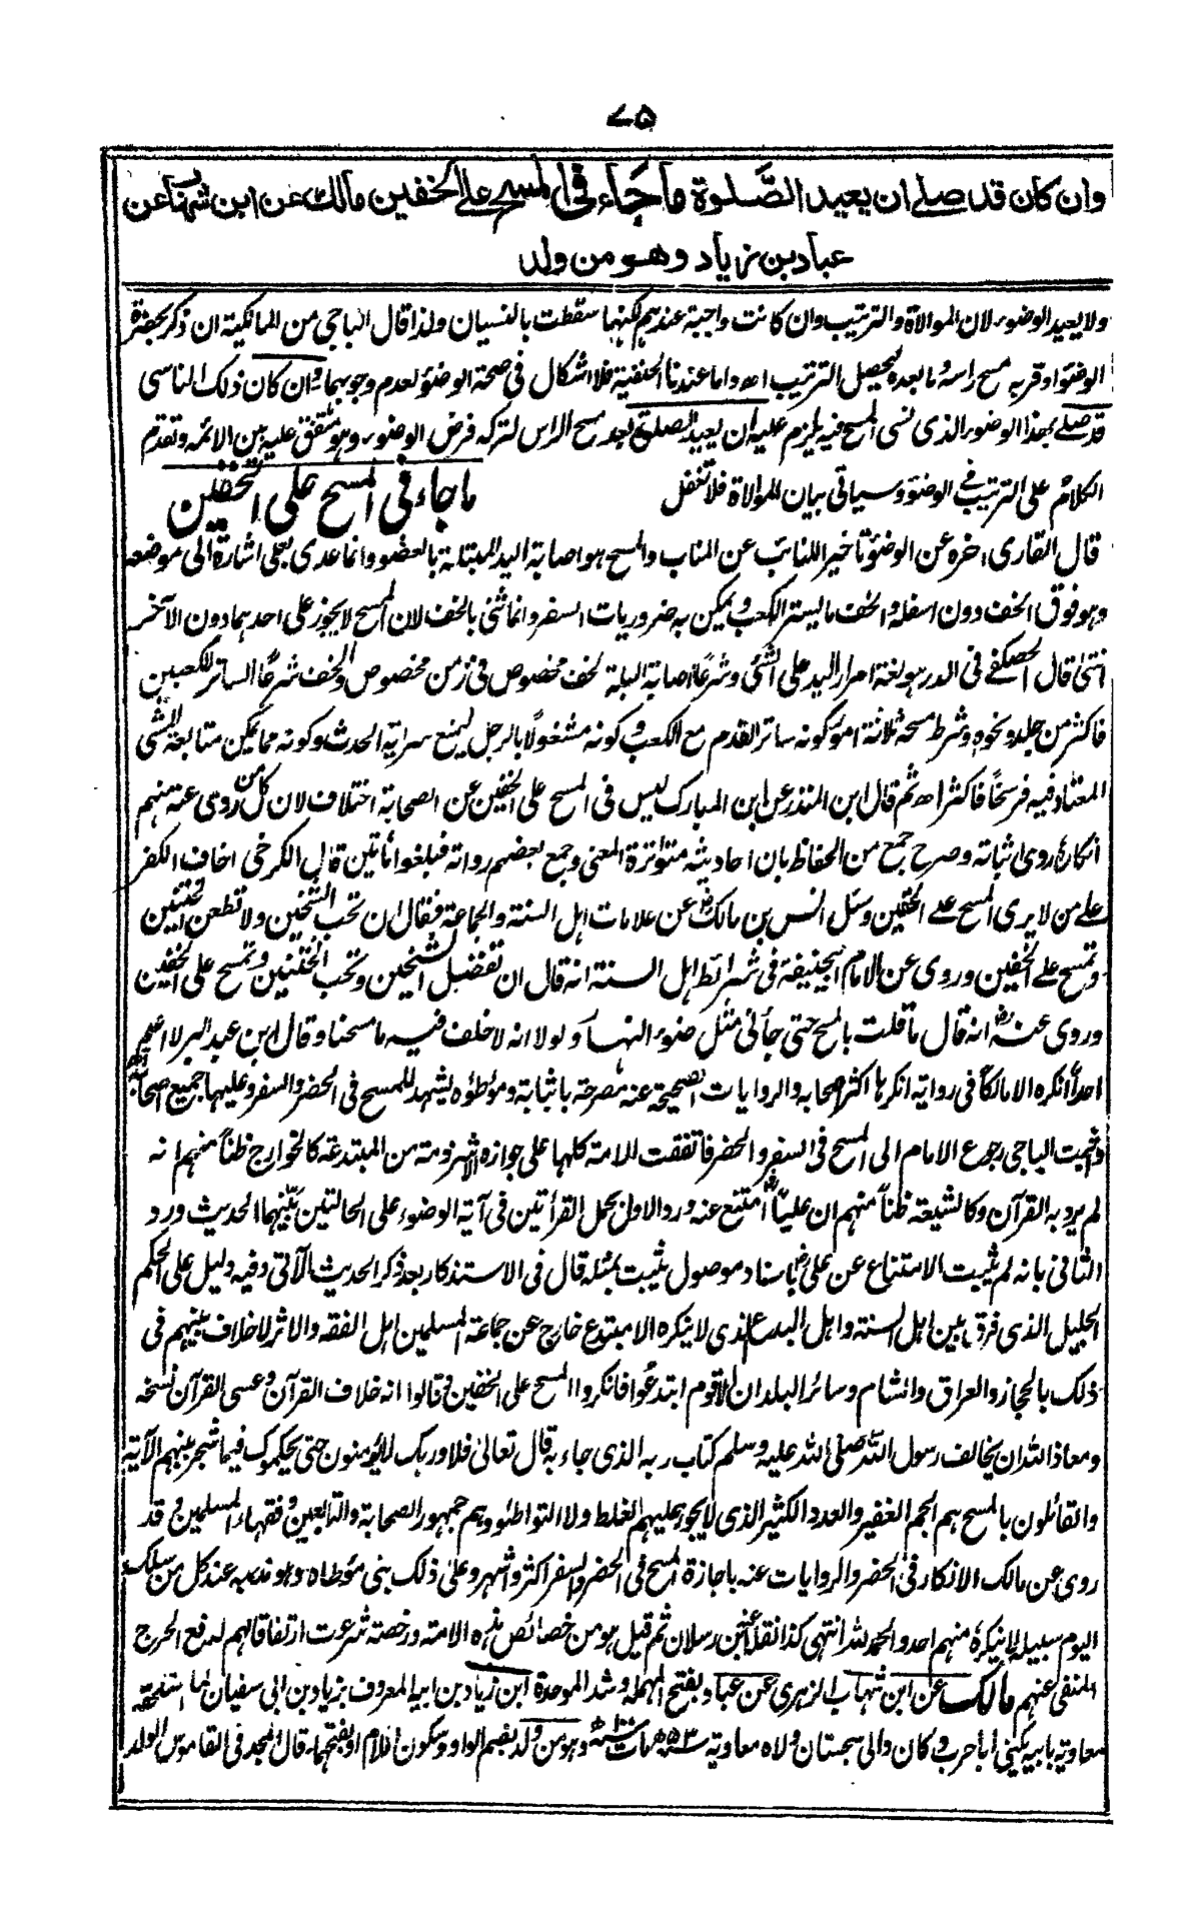 ٧٥
وان كان قد صلے ان يعيد الصَّلوة ما جَاء فى المسح على الخفين مالك عن ابن شهاب عن
عباد بن زياد وهو من ولد
ولا يعيد الوضوء لان الموالاة والترتيب وان كانت واجبة عندهم لكنها سقطت بالنسيان ولذا قال الباجى من المالكية ان ذكر بحضرة
الوضوء او قربه مسح راسه وما بعده ليحصل الترتيب اھ واما عندنا الحنفية فلا اشكال فى صحة الوضوء لعدم وجوبهما وان كان ذلك الناسى
قد صلے بهذا الوضوء الذى نسى المسح فيه يلزم عليه ان يعيد الصلوة بعد مسح الراس لتركه فرض الوضوء وهو متفق عليه بين الائمة وتقدم
الكلام على الترتيب فى الوضوء وسياتى بيان الموالاة فلا تغفل ما جاء فى المسح على الخفين
قال القارى اخره عن الوضوء تاخير اللنائب عن المناب والمسح هو اصابة اليد المبتلة بالعضو وانما عدى بعلى اشارة الى موضعه
وهو فوق الخف دون اسفله والخف ما يستر الكعب ويمكن به ضروريات السفر وانما ثنى بالخف لان المسح لا يجوز على احدهما دون الآخر
انتهى قال الحصكفے فى الدر هو لغة امرار اليد على الشئ وشرعًا اصابة البلة لخف مخصوص فى زمن مخصوص والخف شرعًا الساتر للكعبين
فاكثر من جلد ونحوه وشرط مسحه ثلاثة امور كونه ساتر القدم مع الكعب وكونه مشغولًا بالرجل ليمنع سراية الحدث وكونه مما يمكن متابعة المشى
المعتاد فيه فرسخًا فاكثر اھ ثم قال ابن المنذر عن ابن المبارك ليس فى المسح على الخفين عن الصحابة اختلاف لان كل من روى عنه منهم
انكاره روى اثباته وصرح جمع من الحفاظ بان احاديثه متواترة المعنى وجمع بعضهم رواته فبلغوا مأتين قال الكرخى اخاف الكفر
على من لا يرى المسح على الخفين وسئل انس بن مالك عن علامات اهل السنة والجماعة فقال ان تحب الشيخين ولا تطعن الختنين
وتمسح على الخفين وروى عن الامام ابى حنيفة فى شرائط اهل السنة انه قال ان تفضل الشيخين وتحب الختنين وتمسح على الخفين
وروى عنه انه قال ما قلت بالمسح حتى جاءنى مثل ضوء النهار ولولا انه لا خلف فيه ما مسحنا وقال ابن عبد البر لا اعلم
احدًا انكره الا مالكًا فى رواية انكرها اكثر اصحابه والروايات الصحيحة عنه مصرحة باثباته ومؤطؤه يشهد للمسح فى الحضر والسفر وعليها جميع اصحابه
واثبت الباجى رجوع الامام الى المسح فى السفر والحضر فاتفقت الامة كلها على جوازه الا شرذمة من المبتدعة كالخوارج ظنًا منهم انه
لم يرد به القرآن وكالشيعة ظنًا منهم ان عليًا امتنع عنه ورد الاول بحمل القرأتين فى آية الوضوء على الحالتين بينهما الحديث ورد
الثانى بانه لم يثبت الامتناع عن على باسناد موصول يثبت بمثله قال فى الاستذكار بعد ذكر الحديث الآتى وفيه دليل على الحكم
الجليل الذى فرق بين اهل السنة واهل البدع الذى لا ينكره الا مبتدع خارج عن جماعة المسلمين اهل الفقه والاثر لا خلاف بينهم فى
ذلك بالحجاز والعراق والشام وسائر البلدان الا قوم ابتدعوا فانكروا المسح على الخفين وقالوا انه خلاف القرآن وعسى القرآن نسخه
ومعاذ الله ان يخالف رسول الله صلى الله عليه وسلم كتاب ربه الذى جاء به قال تعالى فلا وربك لا يؤمنون حتى يحكموك فيما شجر بينهم الآية
والقائلون بالمسح هم الجم الغفير والعدد الكثير الذى لا يجوز عليهم الغلط ولا التواطئو وهم جمهور الصحابة والتابعين وفقهاء المسلمين وقد
روى عن مالك الانكار فى الحضر والروايات عنه باجازة المسح فى الحضر والسفر اكثر واشهر وعلى ذلك بنى مؤطاه وهو مذهبه عند كل من سلك
اليوم سبيله لا ينكره منهم احد والحمد لله انتهى كذا نقله عنه ابن رسلان ثم قيل هو من خصائص هذه الامة ورخصة شرعت ارتفاقا لهم لدفع الحرج
المنفى عنهم مالك عن ابن شهاب الزهرى عن عباد بفتح المهملة وشد الموحدة ابن زياد بن ابيه المعروف بزياد بن ابى سفيان لما استلحقه
معاوية بابيه يكنى ابا حرب وكان والى سجستان ولاه معاوية سنة ٥٣ھ مات سنة ١٠٠ھ وهو من ولد بضم الواو وسكون اللام او بفتحهما قال المجد فى القاموس الولد